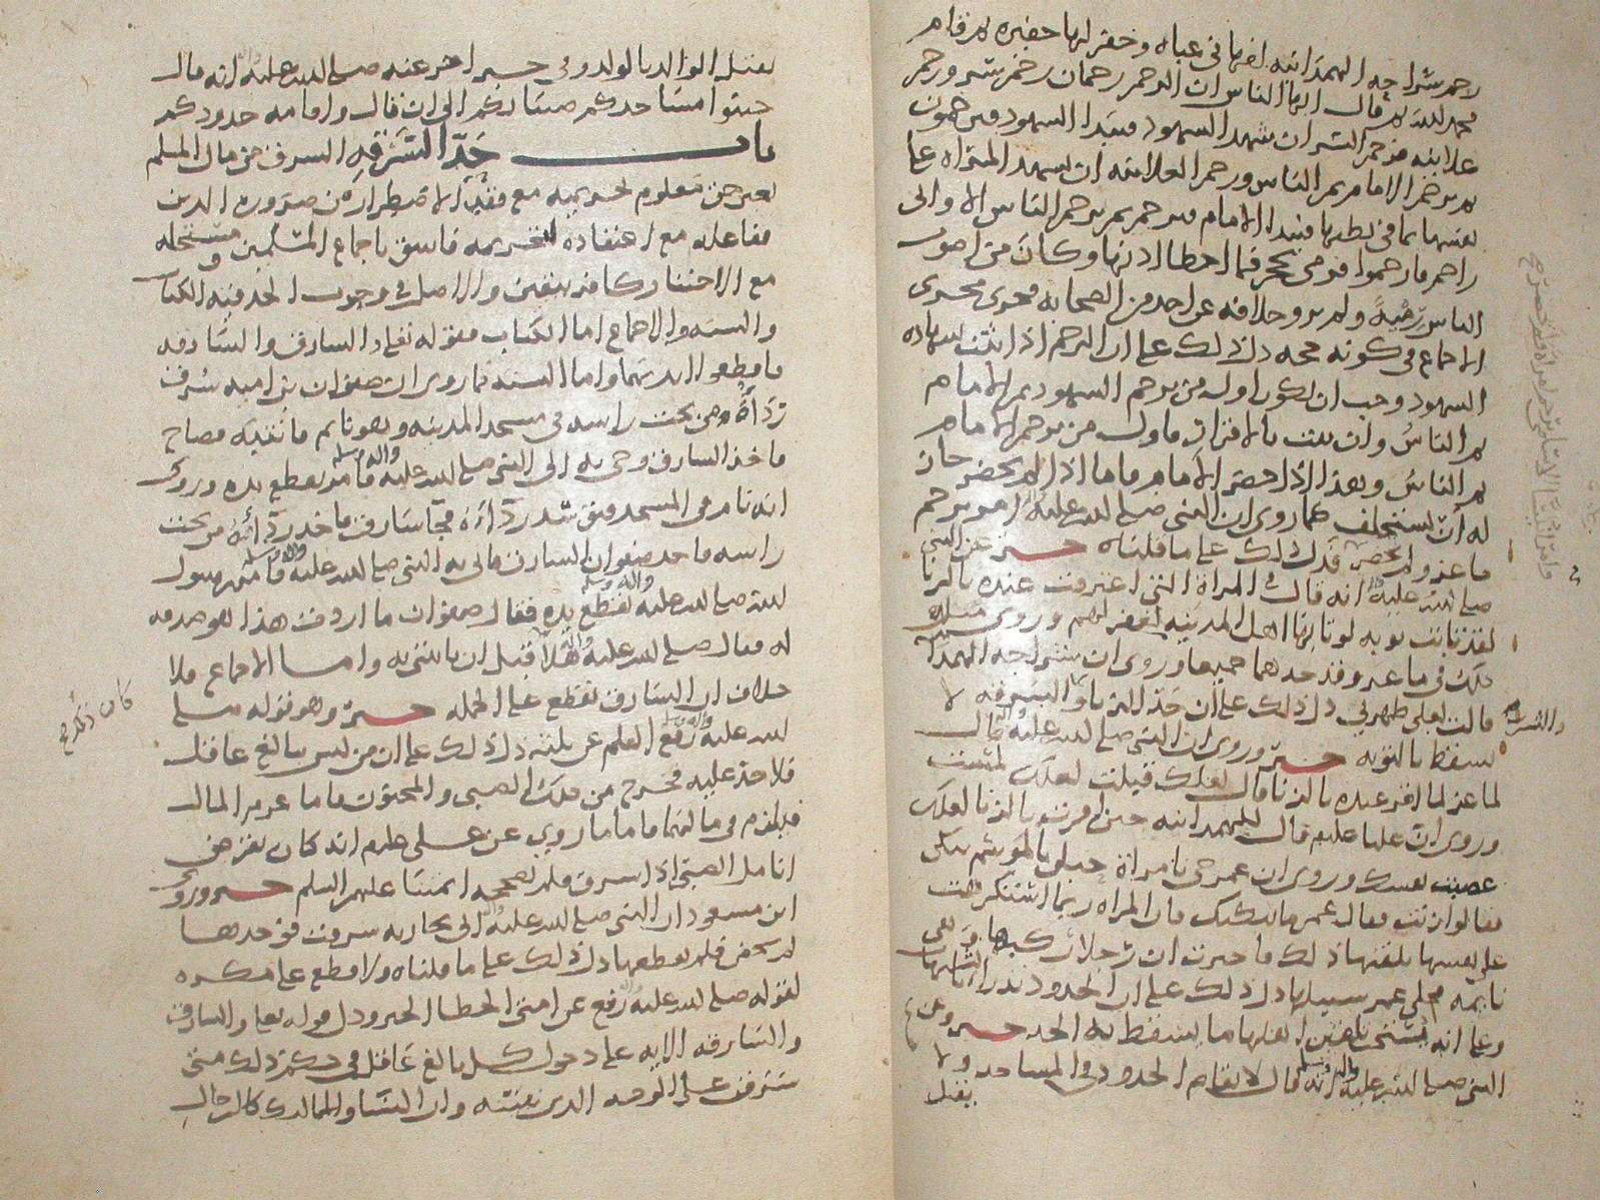 رجم شراحه الهمدانيه لفها في عباه وحفر لها حفيره ثم قام
محمد الله ثم قال ايها الناس ان الرجم رجمان رجم سر ورجم
علانيه فرجم السر ان يشهد الشهود فيبدا الشهود فيرجمون
ثم يرجم الامام ثم الناس ورجم العلانيه ان تشهد المراه على
نفسها بما في بطنها فيبدا الامام فيرجم ثم يرجم الناس الا واني
راجم فارجموا فرمى بحجر فما اخطا اذنها وكان من اصوب
الناس رميةً ولم يرو خلافه عن احد من الصحابه فجرى مجرى
الاجماع في كونه حجه دل ذلك على ان الرجم اذا ثبت بشهاده
الشهود وجب ان يكون اول من يرجم الشهود ثم الامام
ثم الناسُ وان ثبت بالاقرار فاول من يرجم الامام
ثم الناسُ وهذا اذا حضر الامام فاما اذا لم يحضر جاز
له ان يستخلف كما روي ان النبي صلى الله عليه امر برجم
ماعز ولم يحضر فدل ذلك على ما قلناه خبر عن النبي
صلى الله عليه انه قال في المراة التي اعترفت عنده بالزنا
لقد تابت توبه لو تابها اهل المدينه لغفر لهم وروي مثل
ذلك في ماعز وقد حدهما جميعا وروي ان شراحه الهمدانيه
قالت لعلي طهرني دل ذلك على ان حد الزنا والسرقه لا
يسقط بالتوبه خبر وروي ان النبي صلى الله عليه قال
لماعز لما اقر عنده بالزنا قال لعلك قبلت لعلك لمست
وروي ان عليا عليلم قال للهمدانيه حين اقرت بالزنا لعلك
عصيت نفسك وروي ان عمر جي بامراة حبلى بالموسم تبكي
فقالوا زنت فقال عمر ما يبكيك فان المراه ربما استكرهت
على نفسها يلقنها ذلك فاخبرت ان رجلا ركبها وهي
نايمه فخلى عمر سبيلها دل ذلك على ان الحدود تدرا بالشبهات
وعلى انه يستحب تلقين اهلها ما يسقط به الحد خبر وعن
النبي صلى الله عليه واله وسلم انه قال لا تقام الحدود في المساجد ولا
يقتل
والسرقه
يقتل الوالد بالولد وفي خبر اخر عنه صلى الله عليه انه قال
جنبوا مساجدكم صبيانكم الى ان قال واقامه حدودكم
باب حَدّ السَّرَقهِ السرق من مال المسلم
بغير حق معلوم تحريميه مع فقد الاضطرار من ضروره الدين
ففاعله مع اعتقاده لتحريمه فاسق باجماع المسلمين ومستحله
مع الاختيار كافر بيقين والاصل في وجوب الحد فيه الكتاب
والسنه والاجماع اما الكتاب فقوله تعلى والسارق والسارقه
فاقطعوا ايديهما واما السنه فما روي ان صفوان بن اميه سُرق
رداؤه من تحت راسه في مسجد المدينه وهو نايم فانتبه فصاح
فاخذ السارق وجي به الى النبي صلى الله عليه واله وسلم فامر بقطع يده وروي
انه نام في المسجد فتوسد رداءه فجا سارق فاخذ رداءه من تحت
راسه فاخذ صفوان السارق فاتى به النبي صلى الله عليه واله وسلم فامر رسول
الله صلى الله عليه واله وسلم بقطع يده فقال صفوان ما اردت هذا هو صدقه
له فقال صلى الله عليه واله هَلّا قبل ان تاتيني به واما الاجماع فلا
خلاف ان السارق يقطع على الجمله خبر وهو قوله صلى
الله عليه واله وسلم رفع القلم عن ثلثه دل ذلك على ان من ليس ببالغ عاقل
فلا حد عليه فخرج من ذلك الصبي والمجنون فاما غرم المال
فيلزم في مالهما فاما ما روي عن علي عليلم انه كان يقرض
انامل الصبي اذا سرق فلم يصححه ايمتنا عليهم السلم خبر وروى
ابن مسعود ان النبي صلى الله عليه اتي بجاريه سرقت فوجدها
لم تحض فلم يقطعها دل ذلك على ما قلناه ولا قطع على مكره
لقوله صلى الله عليه رفع عن امتي الخطا الخبر ودل قوله تعلى والسارق
والسارقه الايه على دخول كل بالغ عاقل في حكم ذلك متى
سرق على الوجه الذي نبينه وان النسا والمماليك كالرجال